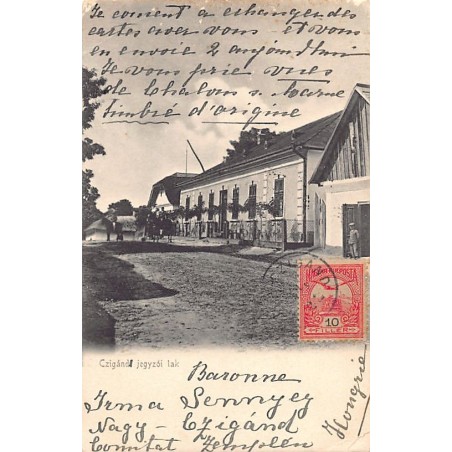 Je consent à echanger des
cartes avec vous - et vous
en envoie 2 aujourd'hui
Je vous prie vues
de Chalons s. Marne
timbré d'origine
MAGYAR KIR. POSTA
10
FILLER
Czigándi jegyzői lak
Baronne
Irma Sennyey
Nagy-Czigánd
Comitat Zemplén
Hongrie